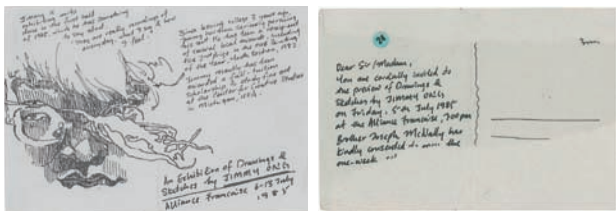 Jimmy is
exhibiting works
done in the first half
of 1985, which he has something
to say about.
"They are really recordings of
everyday. What I say & how
I feel."
Since leaving college 3 years ago,
Jimmy has been seriously pursuing
his art. He has been a recipient
of several local awards, including
the
of the Year, Youth Section, 1983
Jimmy recently has been
awarded a full-tuition
Scholarship to study Fine art
at the Center for Creative Studies
in Michigan, USA.
An Exhibition of Drawings &
Sketches by JIMMY ONG
Alliance Francaise 6-13 July
1985
Dear Sir/Madam,
You are cordially invited to
the preview of Drawings &
Sketches by JIMMY ONG
on Friday, 5th July 1985
at the Alliance Francaise, 7.00pm
Brother Joseph McNally has
kindly consented to open the
one-week